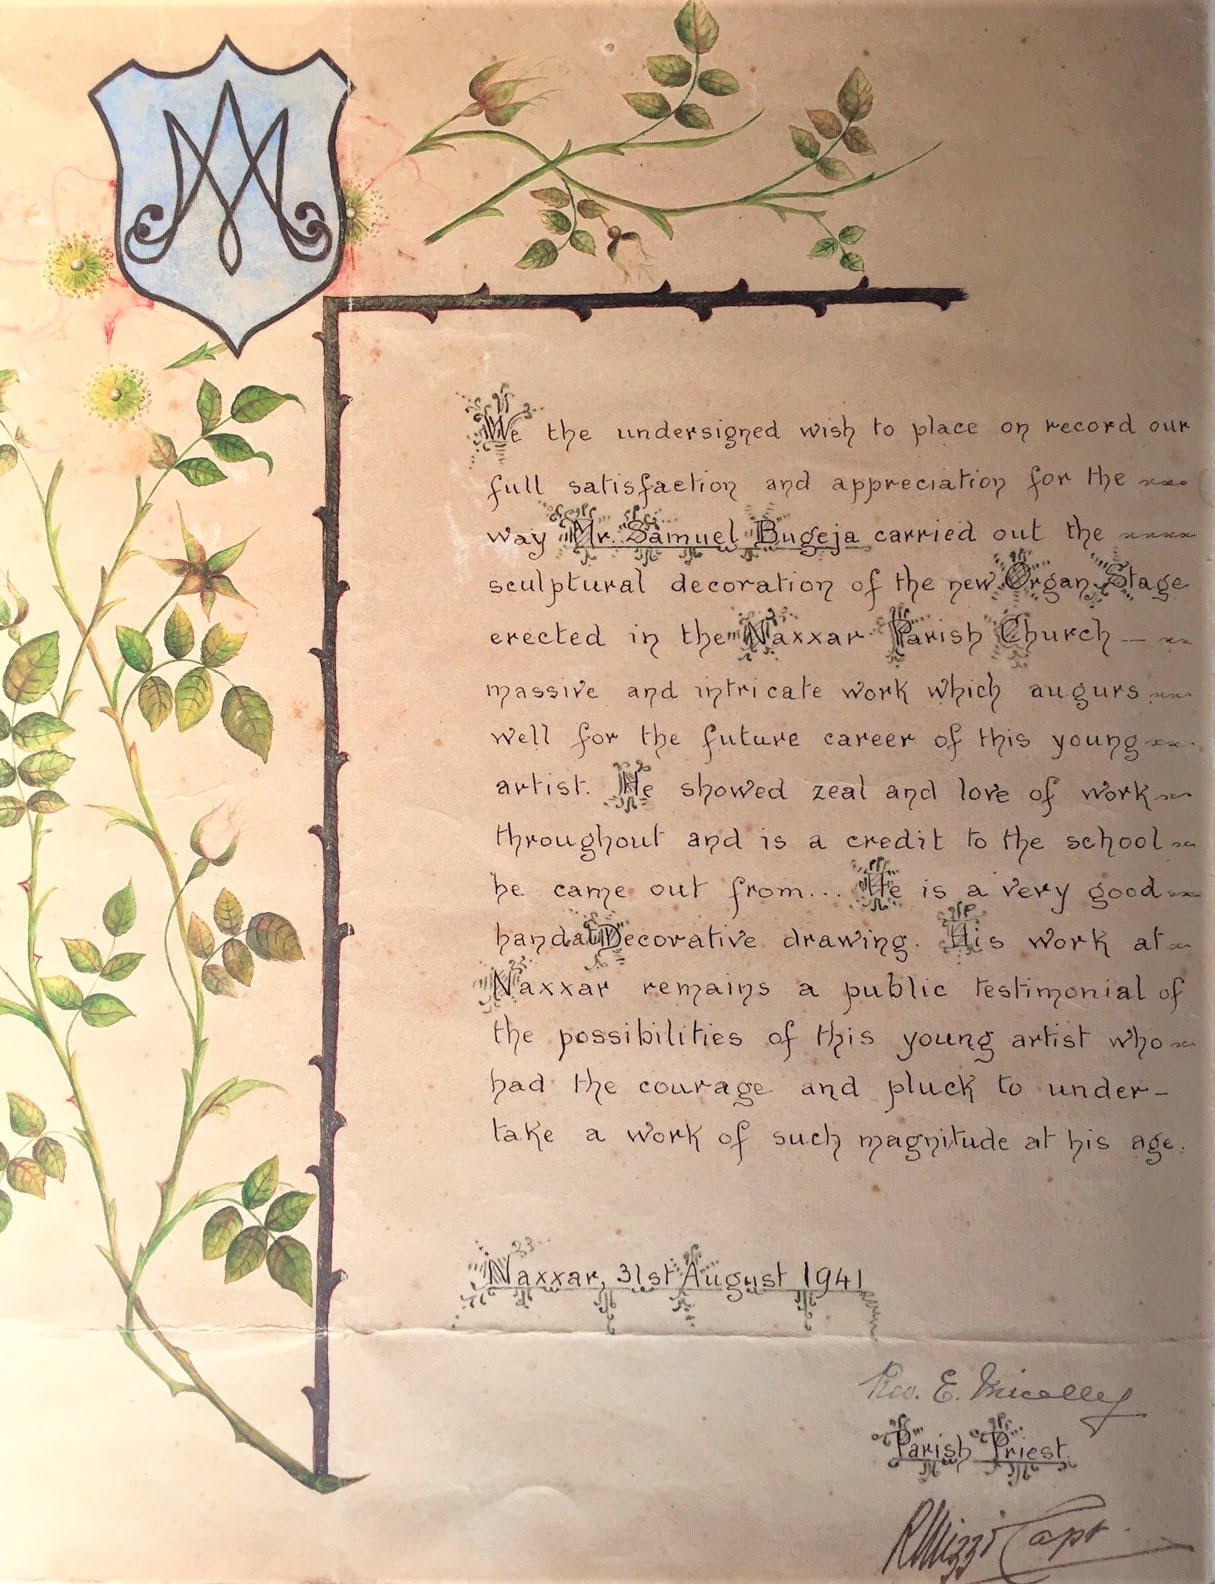 We the undersigned wish to place on record our
full satisfaction and appreciation for the
way Mr. Samuel Bugeja carried out the
sculptural decoration of the new Organ Stage
erected in the Naxxar Parish Church —
massive and intricate work which augurs
well for the future career of this young
artist. He showed zeal and love of work
throughout and is a credit to the school
he came out from... He is a very good
hand at Decorative drawing. His work at
Naxxar remains a public testimonial of
the possibilities of this young artist who
had the courage and pluck to under-
take a work of such magnitude at his age.
Naxxar, 31st August 1941
Rev. E.
Parish Priest.
R Mizzi Capt.